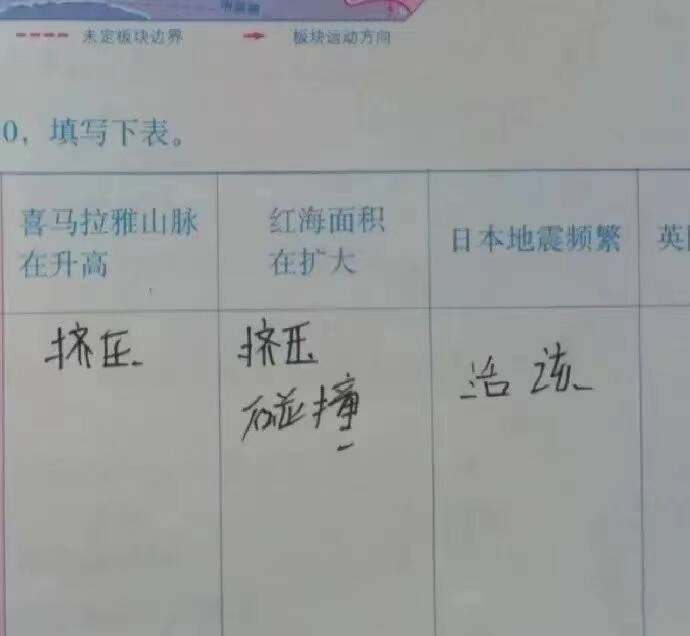 未定板块边界 板块运动方向
0，填写下表。
喜马拉雅山脉
在升高
红海面积
在扩大
日本地震频繁
英
挤压
挤压
碰撞
活泼